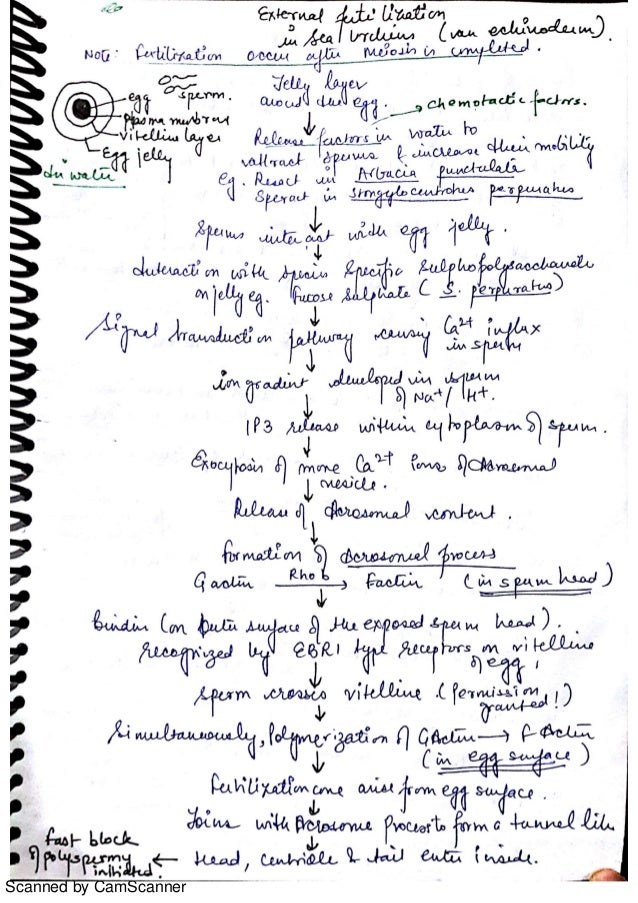 External fertilization
in Sea Urchins (an echinoderm).
Note: Fertilization occurs after meiosis is completed.
egg
sperm.
Plasma membrane
Vitelline layer
Egg jelly
In water
Jelly layer
around the egg.
→ Chemotactic factors.
Release factors in water to
attract sperms & increase their mobility
eg. Resact in Arbacia punctulata
Speract in Strongylocentrotus purpuratus
Sperms interact with egg jelly.
Interaction with species specific Sulphopolysaccharide
on jelly eg. Fucose Sulphate (S. purpuratus)
Signal transduction pathway causing Ca2+ influx
in sperm
ion gradient developed in sperm
of Na+/H+.
IP3 release within cytoplasm of sperm.
Exocytosis of more Ca2+ ions of Acrosomal
vesicle.
Release of Acrosomal content.
Formation of Acrosomal process
G actin Rho b → F actin (in sperm head)
Bindin (on outer surface of the exposed sperm head).
recognized by EBR1 type receptors on vitelline
of egg
Sperm crosses vitelline (Permission
granted!)
Simultaneously, Polymerization of G Actin → F Actin
(in egg surface)
Fertilization cone arise from egg surface.
Joins with Acrosome Process to form a tunnel like
Head, centriole & tail enter inside.
fast block
of polyspermy ←
initiated.
Scanned by CamScanner